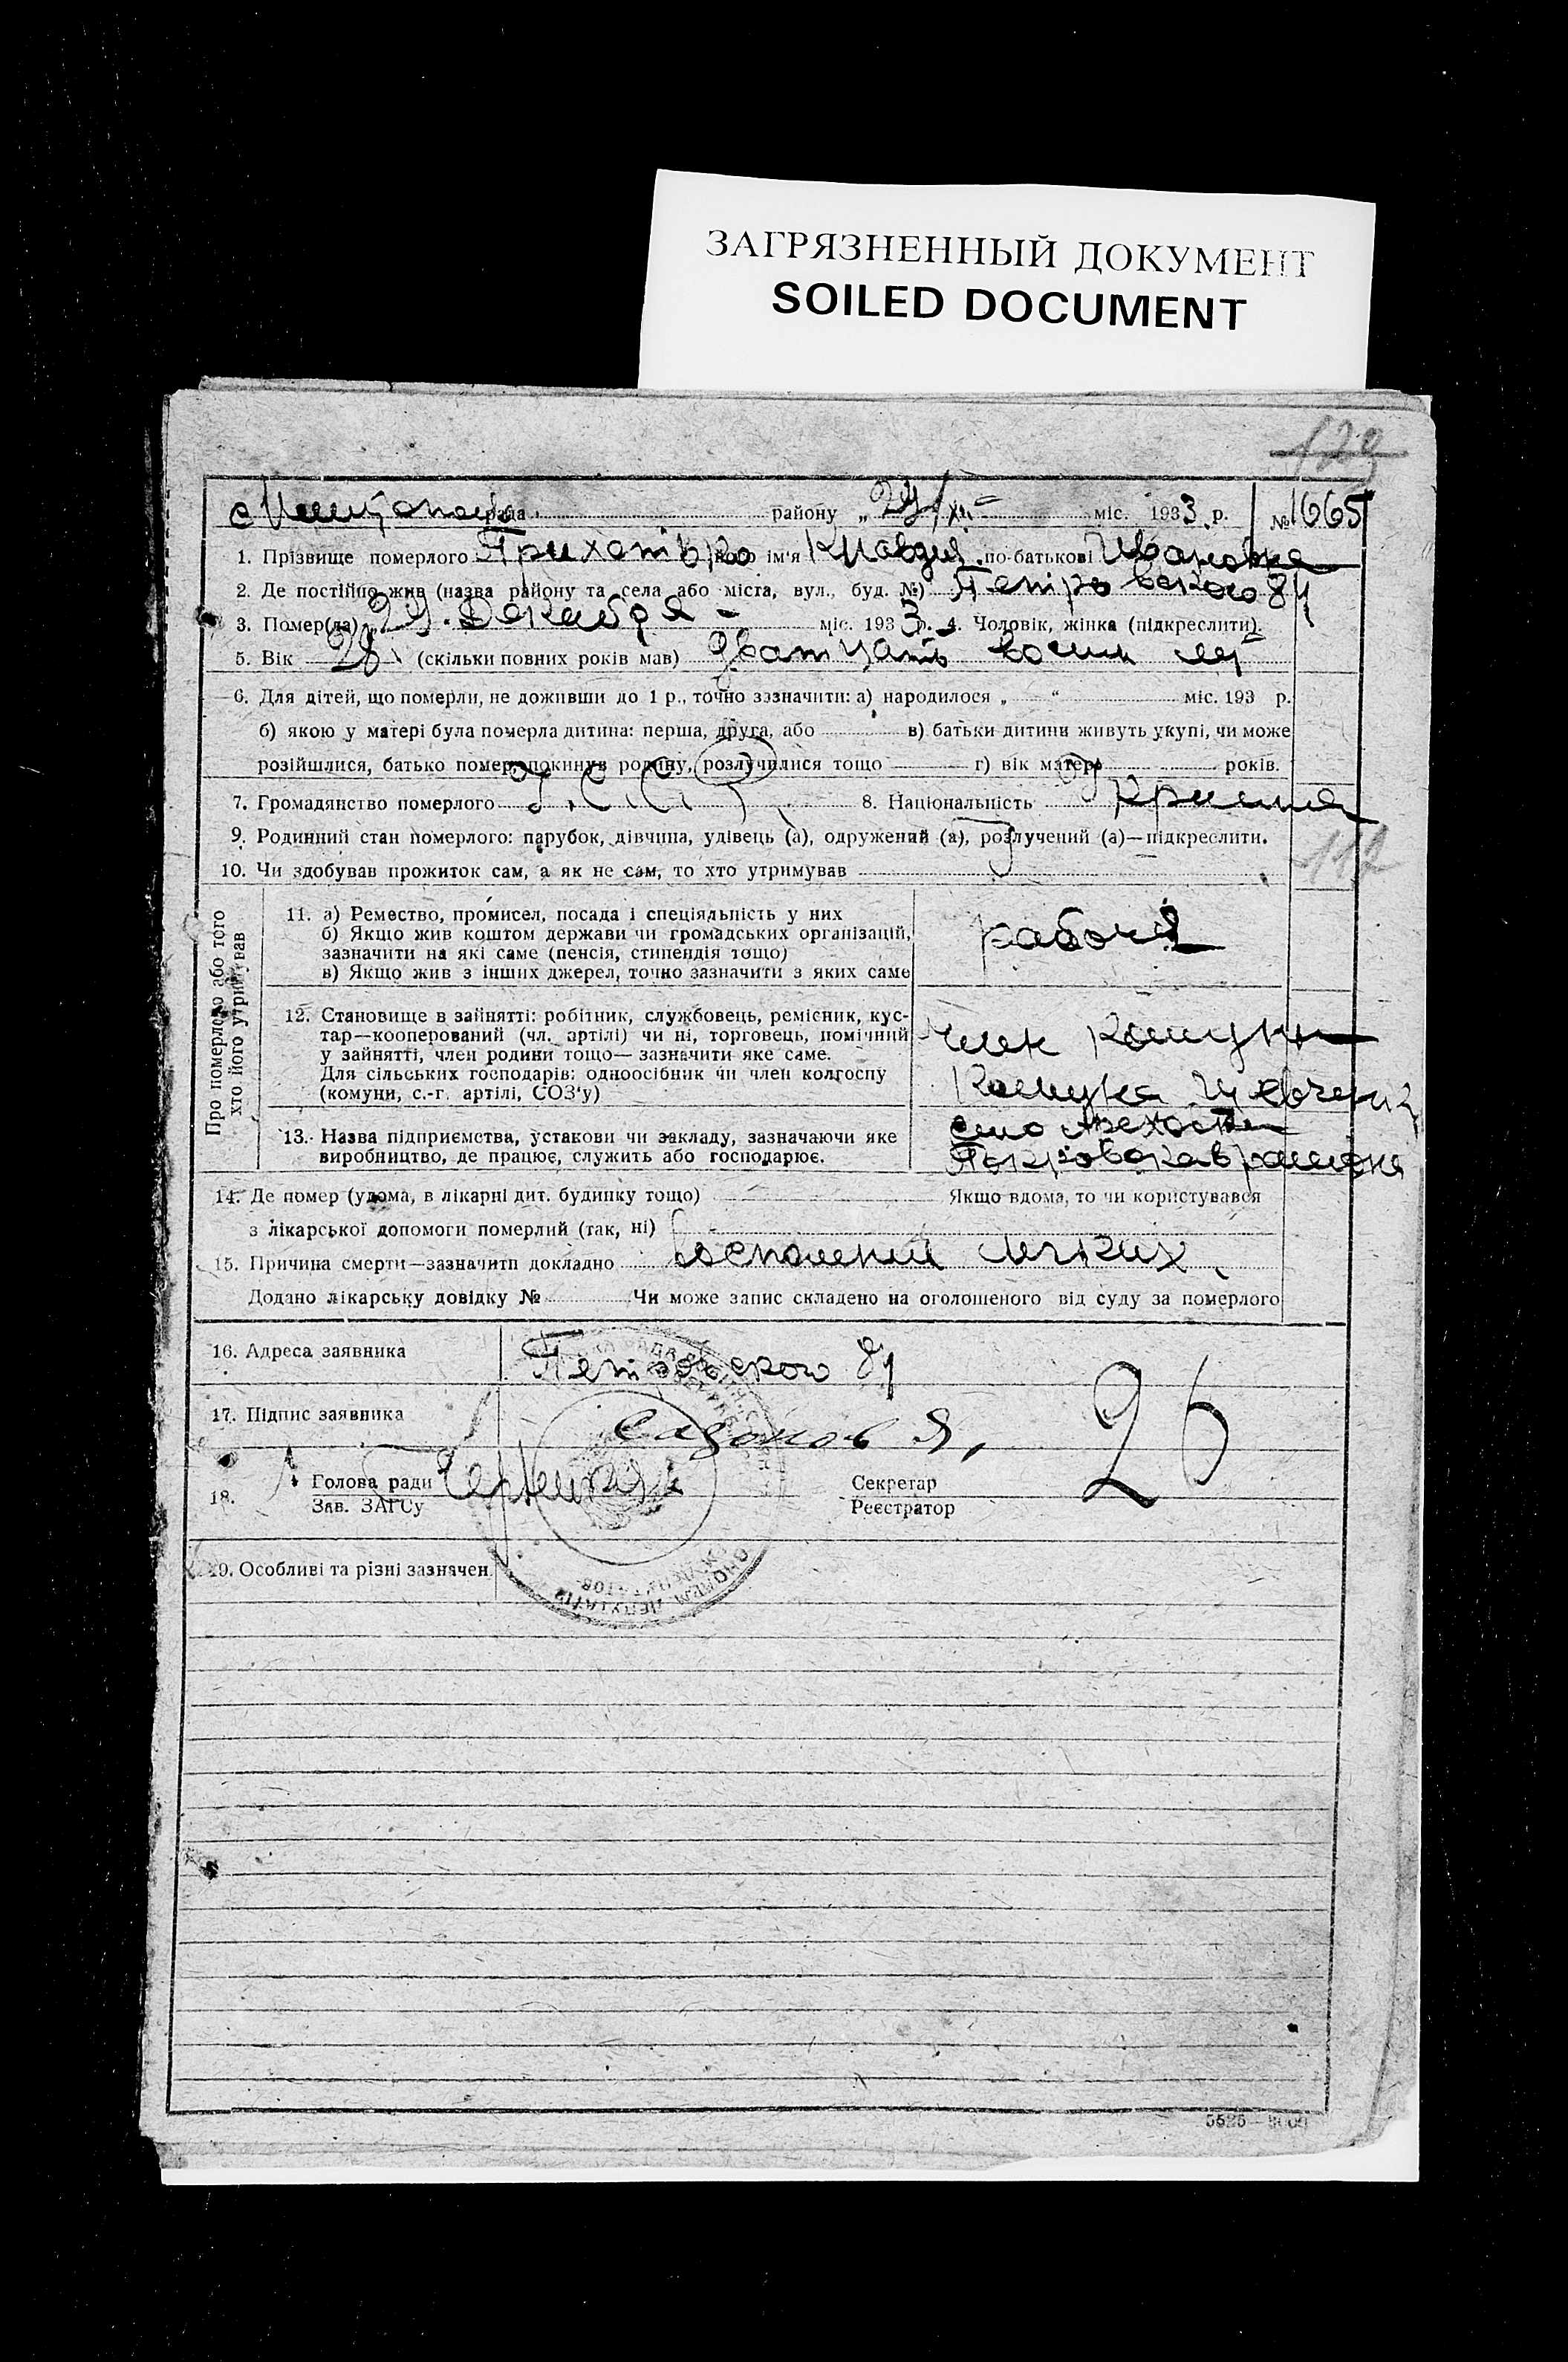 ЗАГРЯЗНЕННЫЙ ДОКУМЕНТ
SOILED DOCUMENT
района „ 29/XII - міс. 1933 р. № 1665
1. Прізвище померлого його ім'я Клавдия по-батькові Ивановна
2. Де постійно жив (назва району та села або міста, вул., буд. №) Петровского 84
3. Помер(ла) „29. Декабря - міс. 1933 р. 4. Чоловік, жінка (підкреслити).
5. Вік 28 (скільки повних років мав) Дватцать восим лет
6. Для дітей, що померли, не доживши до 1 р., точно зазначити: а) народилося „ “ міс. 193 р.
б) якою у матері була померла дитина: перша, друга, або в) батьки дитини живуть укупі, чи може
розійшлися, батько помер, покинув родину, розлучилися тощо г) вік матері років.
7. Громадянство померлого 8. Національність
9. Родинний стан померлого: парубок, дівчина, удівець (а), одружений (а), розлучений (а)—підкреслити.
10. Чи здобував прожиток сам, а як не сам, то хто утримував
Про померлого або того
хто його утримував
11. а) Ремество, промисел, посада і спеціяльність у них
б) Якщо жив коштом держави чи громадських організацій,
зазначити на які саме (пенсія, стипендія тощо)
в) Якщо жив з інших джерел, точно зазначити з яких саме
рабочя
12. Становище в зайнятті: робітник, службовець, ремісник, кус-
тар—кооперований (чл. артілі) чи ні, торговець, помічний
у зайнятті, член родини тощо— зазначити яке саме.
Для сільських господарів: одноосібник чи член колгоспу
(комуни, с.-г. артілі, СОЗ'у)
член комуни
Комуна Шевченка
13. Назва підприємства, установи чи закладу, зазначаючи яке
виробництво, де працює, служить або господарює.
село
14. Де помер (удома, в лікарні дит. будинку тощо) Якщо вдома, то чи користувався
з лікарської допомоги померлий (так, ні)
15. Причина смерти—зазначити докладно Восполений легких
Додано лікарську довідку № Чи може запис складено на оголошеного від суду за померлого
16. Адреса заявника Петровского 84
17. Підпис заявника Сазонов Я,
26
18. Голова ради
Зав. ЗАГСу
Секретар
Реєстратор
19. Особливі та різні зазначен.